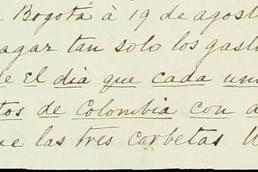 Bogotá á 19 de agost
agar tan solo los gast
e el dia que cada un
tos de Colombia con a
ue las tres corbetas U